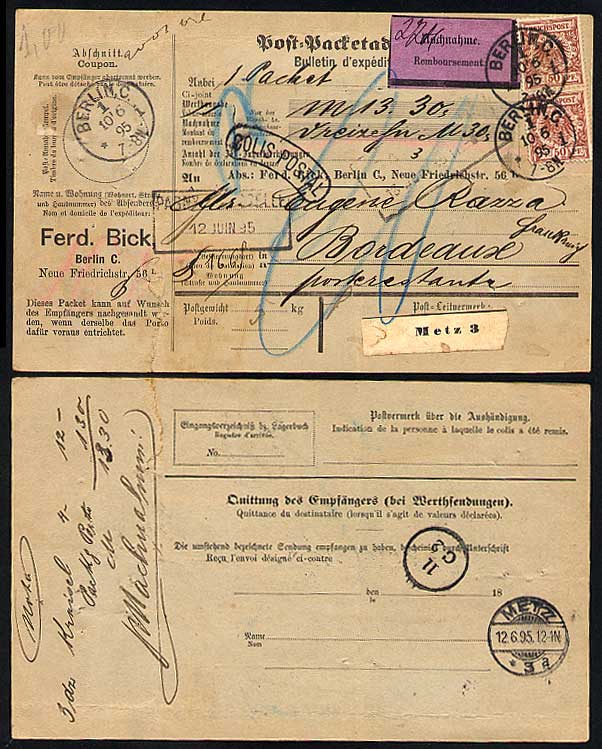 1,00
Abschnitt.
Coupon.
Kann vom Empfänger abgetrennt werden.
Peut être détaché par le destinataire.
BERLIN,C.
1
10 6
95
7-8N
Name u. Wohnung (Wohnort, Straße
und Hausnummer) des Absenders
Nom et domicile de l'expéditeur:
Ferd. Bick,
Berlin C.
Neue Friedrichstr. 56
Dieses Packet kann auf Wunsch
des Empfängers nachgesandt wer-
den, wenn derselbe das Porto
dafür voraus entrichtet.
Post-Packetad
Bulletin d'expédit
Nachnahme.
Remboursement.
REICHSPOST
50 PF.
50 PF.
BERLIN,C.
1
10 6
95
7-8N
BERLIN,C.
1
10 6
95
7-8N
Anbei
Ci-joint
1 Packet
Werthangabe
Nachnahme
m 13 30
Dreizehn M 30
3
COLIS POSTAL
An
Abs.: Ferd. Bick, Berlin C., Neue Friedrichstr. 56,
12 JUIN 95
Eugène Razza
Bordeaux
poste restante
Postgewicht
Poids.
5
kg
Post-Leitvermerk:
Metz 3
Eingangsverzeichniß bz. Lagerbuch
Registre d'arrivée.
No.
Postvermerk über die Aushändigung.
Indication de la personne à laquelle le colis a été remis.
Quittung des Empfängers (bei Werthsendungen).
Quittance du destinataire (lorsqu'il s'agit de valeurs déclarées).
Die umstehend bezeichnete Sendung empfangen zu haben, bescheinigt durch Unterschrift
Reçu l'envoi désigné ci-contre
11.
C 2
den
le
18
Name
Nom
METZ
12.6.95.12-1N
* 3 a
Nota
3 dz Kreisel 4 12 -
Packg Porto 1.30
M 13.30
Nachnahme!